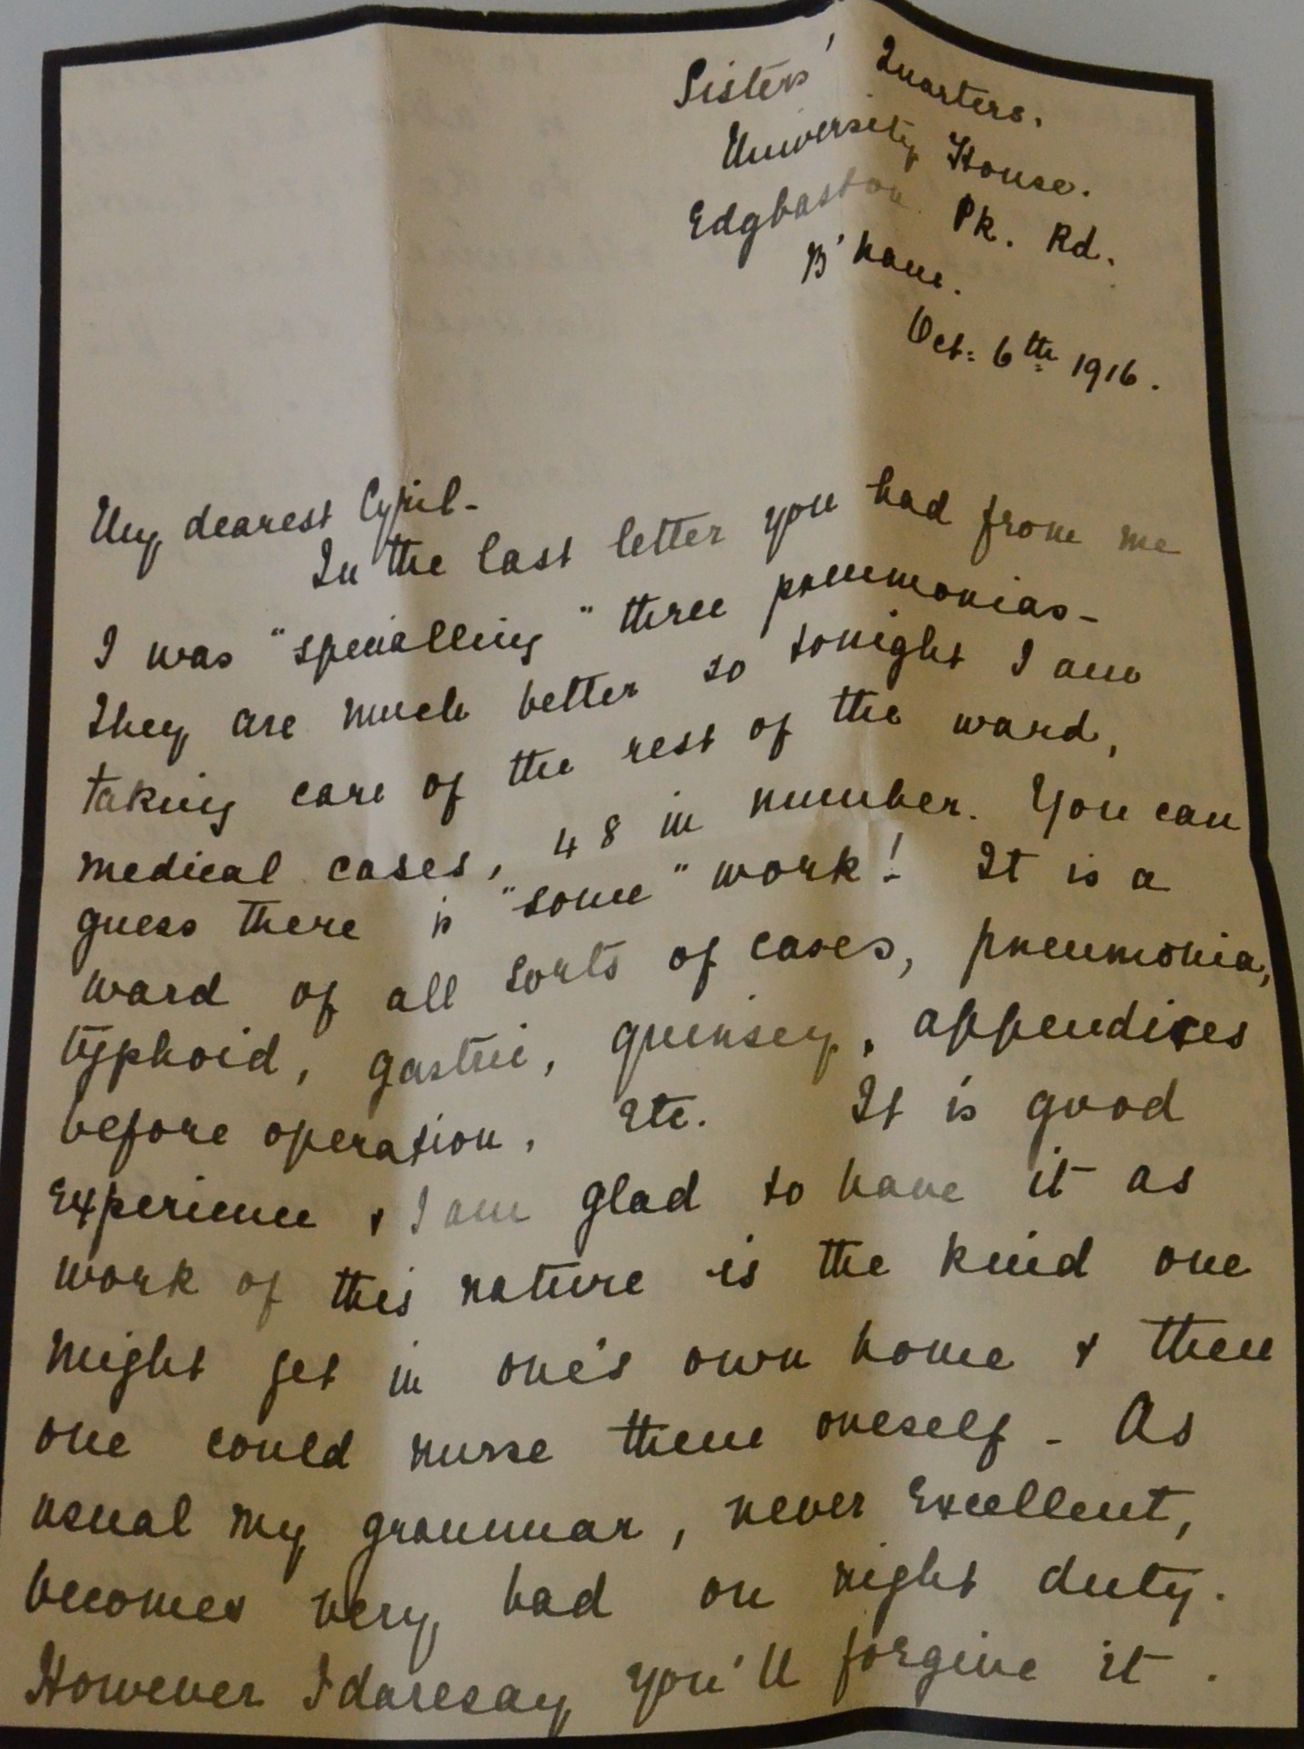 Sisters' Quarters.
University House.
Edgbaston Pk. Rd.
B'ham.
Oct: 6th 1916.
My dearest Cyril-
In the last letter you had from me
I was "specialling" three pneumonias-
They are much better so tonight I am
taking care of the rest of the ward,
medical cases, 48 in number. You can
guess there is "some" work! It is a
ward of all sorts of cases, pneumonia,
typhoid, gastric, quinsey, appendixes
before operation, etc. It is good
experience & I am glad to have it as
work of this nature is the kind one
might get in one's own home & then
one could nurse them oneself - As
usual my grammar, never excellent,
becomes very bad on night duty.
However I daresay you'll forgive it.